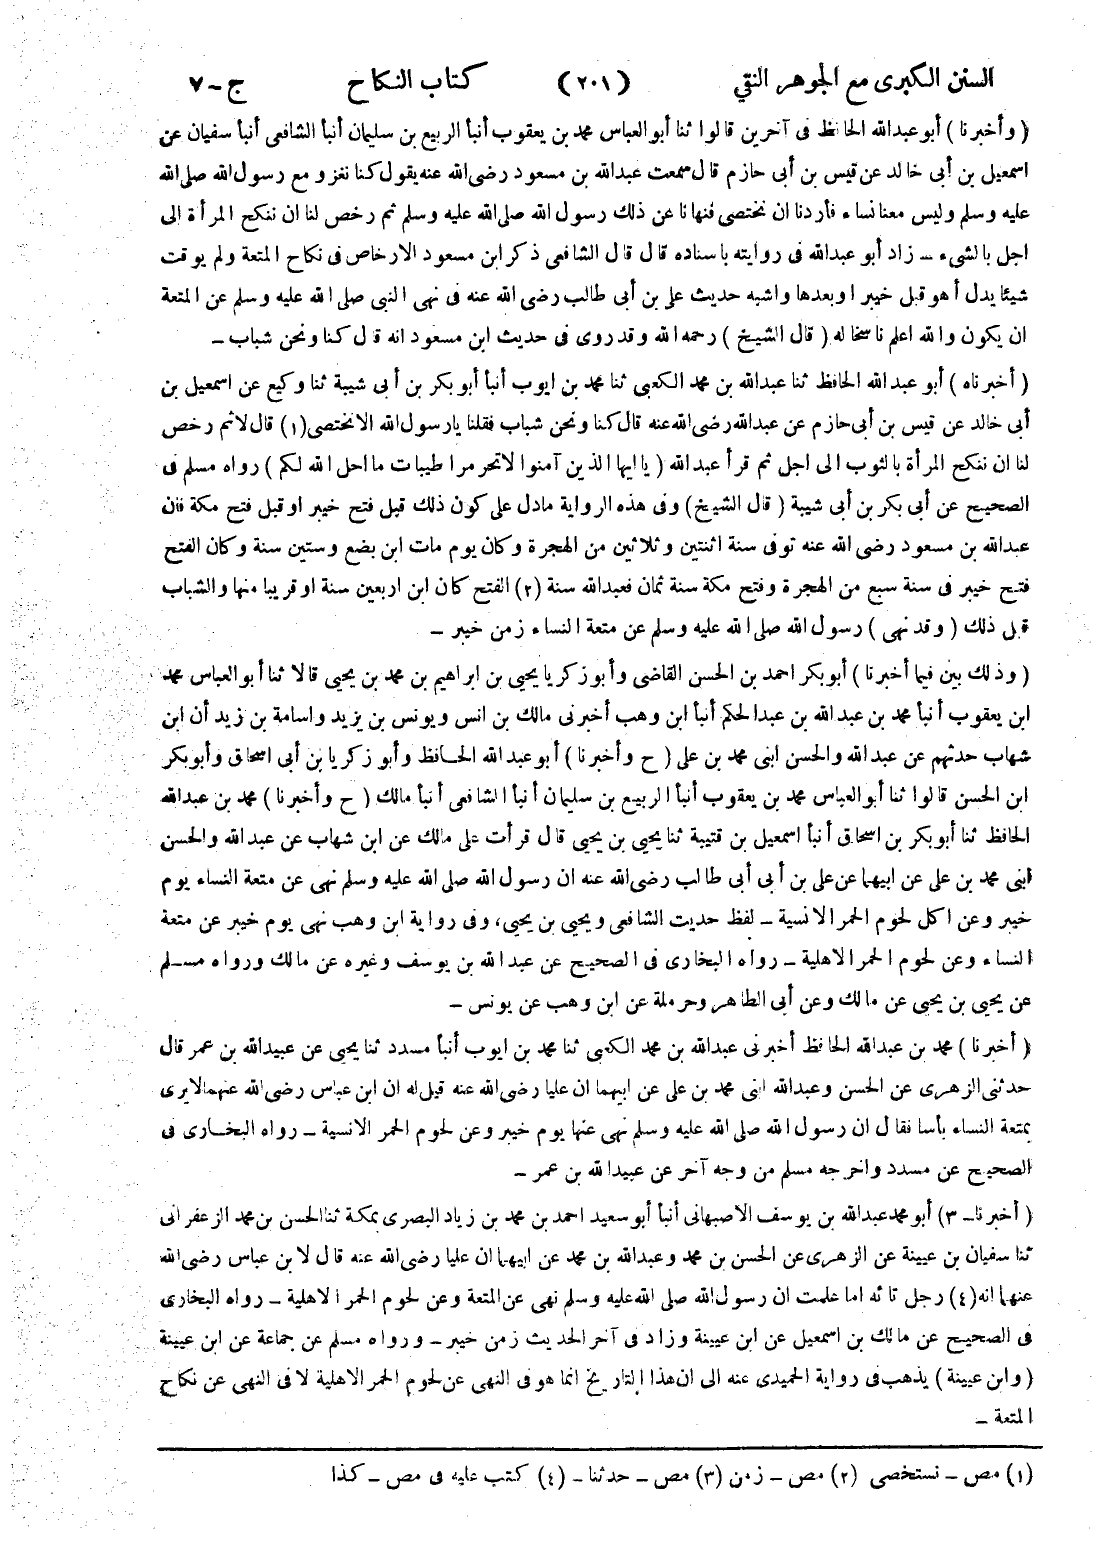 السنن الكبرى مع الجوهر النقي (٢٠١) كتاب النكاح ج-٧
( وأخبرنا ) أبو عبدالله الحافظ فى آخرين قالوا ثنا أبو العباس محمد بن يعقوب أنبأ الربيع بن سليمان أنبأ الشافعى أنبأ سفيان عن
اسمعيل بن أبى خالد عن قيس بن أبى حازم قال سمعت عبدالله بن مسعود رضى الله عنه يقول كنا نغزو مع رسول الله صلى الله
عليه وسلم وليس معنا نساء فأردنا ان نختصى فنهانا عن ذلك رسول الله صلى الله عليه وسلم ثم رخص لنا ان ننكح المرأة الى
اجل بالشىء ـ زاد أبو عبدالله فى روايته باسناده قال قال الشافعى ذكر ابن مسعود الارخاص فى نكاح المتعة ولم يوقت
شيئا يدل أهو قبل خيبر اوبعدها واشبه حديث على بن أبى طالب رضى الله عنه فى نهى النبى صلى الله عليه وسلم عن المتعة
ان يكون والله اعلم ناسخا له ( قال الشيخ ) رحمه الله وقد روى فى حديث ابن مسعود انه قال كنا ونحن شباب ـ
( أخبرناه ) أبو عبد الله الحافظ ثنا عبدالله بن محمد الكعبى ثنا محمد بن ايوب أنبأ أبو بكر بن أبى شيبة ثنا وكيع عن اسمعيل بن
أبى خالد عن قيس بن أبى حازم عن عبدالله رضى الله عنه قال كنا ونحن شباب فقلنا يا رسول الله الا نختصى (١) قال لا ثم رخص
لنا ان ننكح المرأة بالثوب الى اجل ثم قرأ عبد الله ( يا ايها الذين آمنوا لا تحرموا طيبات ما احل الله لكم ) رواه مسلم فى
الصحيح عن أبى بكر بن أبى شيبة ( قال الشيخ ) وفى هذه الرواية مادل على كون ذلك قبل فتح خيبر او قبل فتح مكة فان
عبدالله بن مسعود رضى الله عنه توفى سنة اثنتين وثلاثين من الهجرة وكان يوم مات ابن بضع وستين سنة وكان الفتح
فتح خيبر فى سنة سبع من الهجرة وفتح مكة سنة ثمان فعبدالله سنة (٢) الفتح كان ابن اربعين سنة او قريبا منها والشباب
قبل ذلك ( وقد نهى ) رسول الله صلى الله عليه وسلم عن متعة النساء زمن خيبر ـ
( وذلك بين فيما أخبرنا ) أبو بكر احمد بن الحسن القاضى وأبو زكريا يحيى بن ابراهيم بن محمد بن يحيى قالا ثنا أبو العباس محمد
ابن يعقوب أنبأ محمد بن عبد الله بن عبد الحكم أنبأ ابن وهب أخبرنى مالك بن انس ويونس بن يزيد واسامة بن زيد أن ابن
شهاب حدثهم عن عبدالله والحسن ابنى محمد بن على ( ح وأخبرنا ) أبو عبد الله الحافظ وأبو زكريا بن أبى اسحاق وأبو بكر
ابن الحسن قالوا ثنا أبو العباس محمد بن يعقوب أنبأ الربيع بن سليمان أنبأ الشافعى أنبأ مالك ( ح وأخبرنا ) محمد بن عبدالله
الحافظ ثنا أبو بكر بن اسحاق أنبأ اسمعيل بن قتيبة ثنا يحيى بن يحيى قال قرأت على مالك عن ابن شهاب عن عبدالله والحسن
ابنى محمد بن على عن ابيهما عن على بن أبى أبى طالب رضى الله عنه ان رسول الله صلى الله عليه وسلم نهى عن متعة النساء يوم
خيبر وعن اكل لحوم الحمر الانسية ـ لفظ حديث الشافعى ويحيى بن يحيى، وفى رواية ابن وهب نهى يوم خيبر عن متعة
النساء وعن لحوم الحمر الاهلية ـ رواه البخارى فى الصحيح عن عبد الله بن يوسف وغيره عن مالك ورواه مسلم
عن يحيى بن يحيى عن مالك وعن أبى الطاهر وحرملة عن ابن وهب عن يونس ـ
( أخبرنا ) محمد بن عبدالله الحافظ أخبرنى عبدالله بن محمد الكعبى ثنا محمد بن ايوب أنبأ مسدد ثنا يحيى عن عبيدالله بن عمر قال
حدثنى الزهرى عن الحسن وعبدالله ابنى محمد بن على عن ابيهما ان عليا رضى الله عنه قيل له ان ابن عباس رضى الله عنهما لا يرى
بمتعة النساء بأسا فقال ان رسول الله صلى الله عليه وسلم نهى عنها يوم خيبر وعن لحوم الحمر الانسية ـ رواه البخارى فى
الصحيح عن مسدد واخرجه مسلم من وجه آخر عن عبيدالله بن عمر ـ
( أخبرنا ـ ٣) أبو محمد عبدالله بن يوسف الاصبهانى أنبأ أبو سعيد احمد بن محمد بن زياد البصرى بمكة ثنا الحسن بن محمد الزعفرانى
ثنا سفيان بن عيينة عن الزهرى عن الحسن بن محمد وعبدالله بن محمد عن ابيهما ان عليا رضى الله عنه قال لابن عباس رضى الله
عنهما انه (٤) رجل تائه اما علمت ان رسول الله صلى الله عليه وسلم نهى عن المتعة وعن لحوم الحمر الاهلية ـ رواه البخارى
فى الصحيح عن مالك بن اسمعيل عن ابن عيينة وزاد فى آخر الحديث زمن خيبر ـ ورواه مسلم عن جماعة عن ابن عيينة
( وابن عيينة ) يذهب فى رواية الحميدى عنه الى ان هذا التاريخ انما هو فى النهى عن لحوم الحمر الاهلية لا فى النهى عن نكاح
المتعة ـ
(١) مص ـ نستخصى (٢) مص ـ زمن (٣) مص ـ حدثنا ـ (٤) كتب عليه فى مص ـ كذا